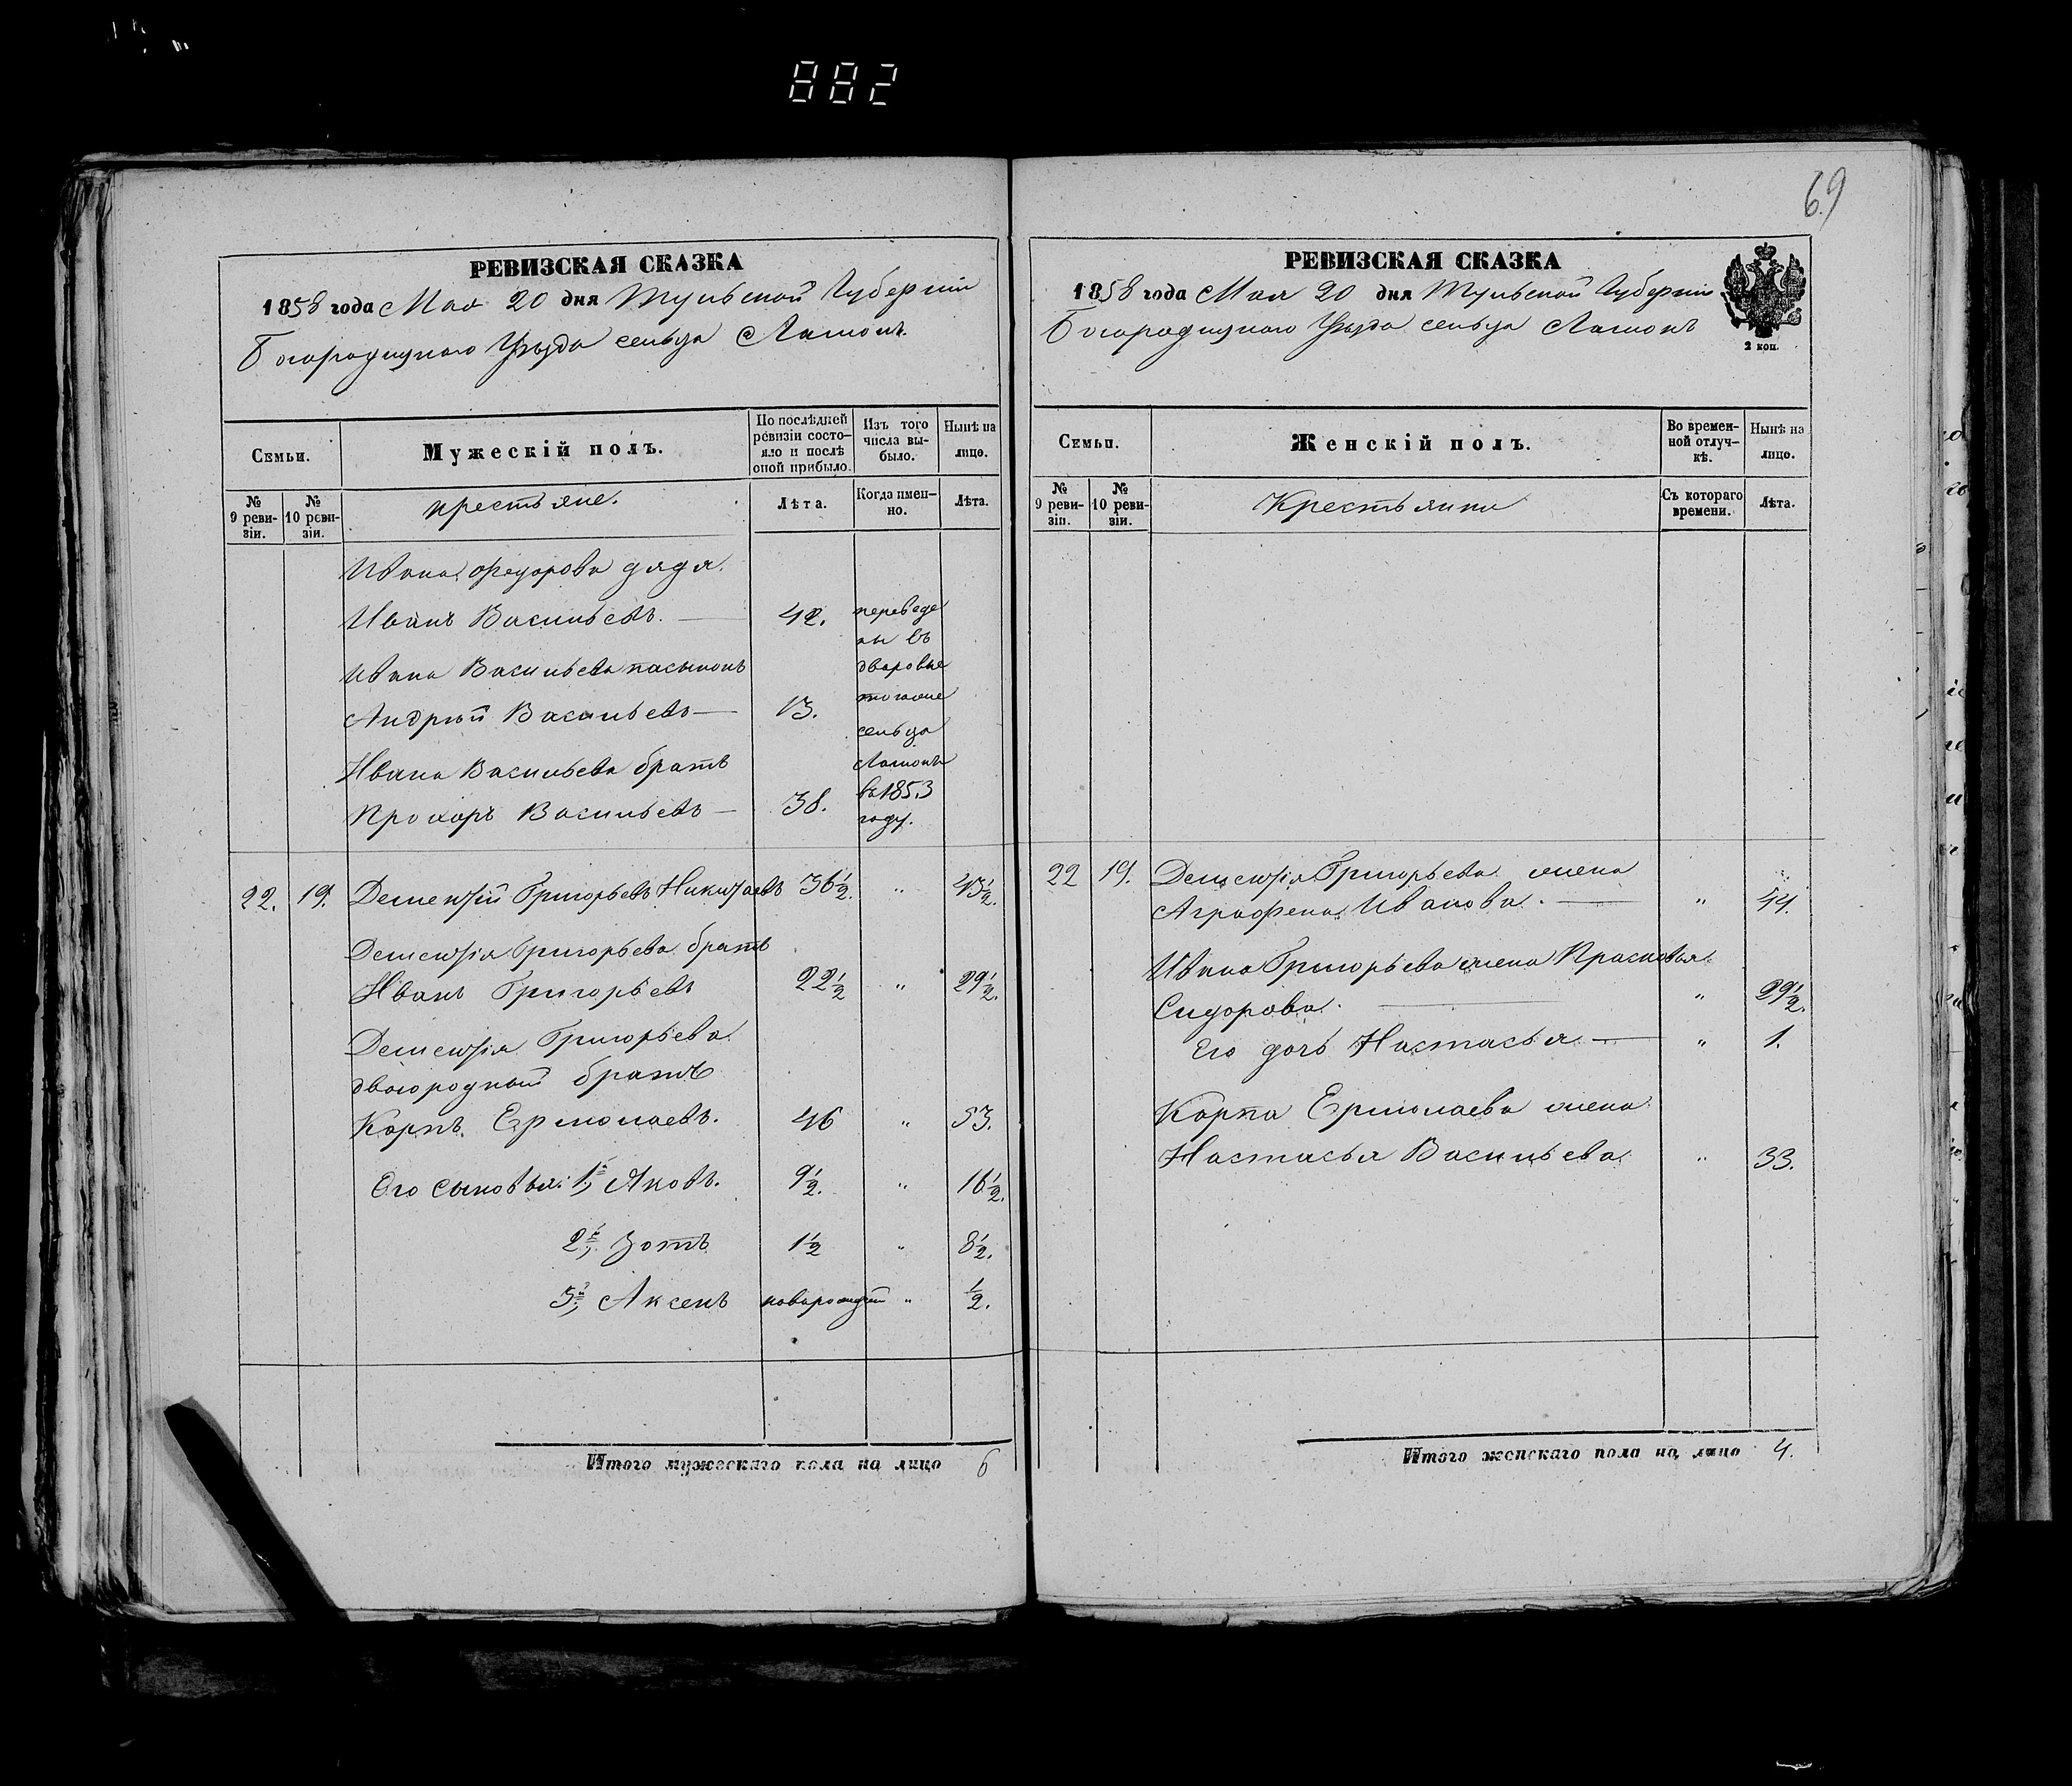 882
69
РЕВИЗСКАЯ СКАЗКА
1858 года Мая 20 дня Тульской Губерніи
Богородицкаго Уѣзда сельца
Семьи.
Мужескій полъ.
По послѣдней ревизіи состо-
яло и послѣ
оной прибыло.
Изъ того
числа вы-
было.
Нынѣ на
лицо.
№
9 реви-
зіи.
№
10 реви-
зіи.
крестьяне.
Лѣта.
Когда имен-
но.
Лѣта.
Ивана Федорова дядя
Иванъ Васильевъ. — 42. переведе
ны въ
Ивана Васильева пасынокъ дворовые
Андрей Васильевъ — 13. тогоже
сельца
Ивана Васильева братъ
Прохоръ Васильевъ — 38. въ 1853
году.
22. 19. Дементій Григорьевъ 36½. " 43½.
Дементія Григорьева братъ
Иванъ Григорьевъ 22½ " 29½.
Дементія Григорьева
двоюродный братъ
Карпъ Ермолаевъ. 46 " 53.
Его сыновья: 1й, Яковъ. 9½. " 16½.
2й, Зотъ 1½ " 8½.
3й, Аксенъ " ½.
Итого мужескаго пола на лицо 6
РЕВИЗСКАЯ СКАЗКА
1858 года Мая 20 дня Тульской Губерніи
Богородицкаго Уѣзда сельца
2 коп.
Семьи.
Женскій полъ.
Во времен-
ной отлуч-
кѣ.
Нынѣ на
лицо.
№
9 реви-
зіи.
№
10 реви-
зіи.
Крестьянки
Съ котораго
времени.
Лѣта.
22 19. Дементія Григорьева жена
Аграфена Иванова. — " 44.
Ивана Григорьева жена Прасковья
Сидорова. — " 29½.
Его дочь Настасья — " 1.
Карпа Ермолаева жена
Настасья Васильева " 33.
Итого женскаго пола на лицо 4.